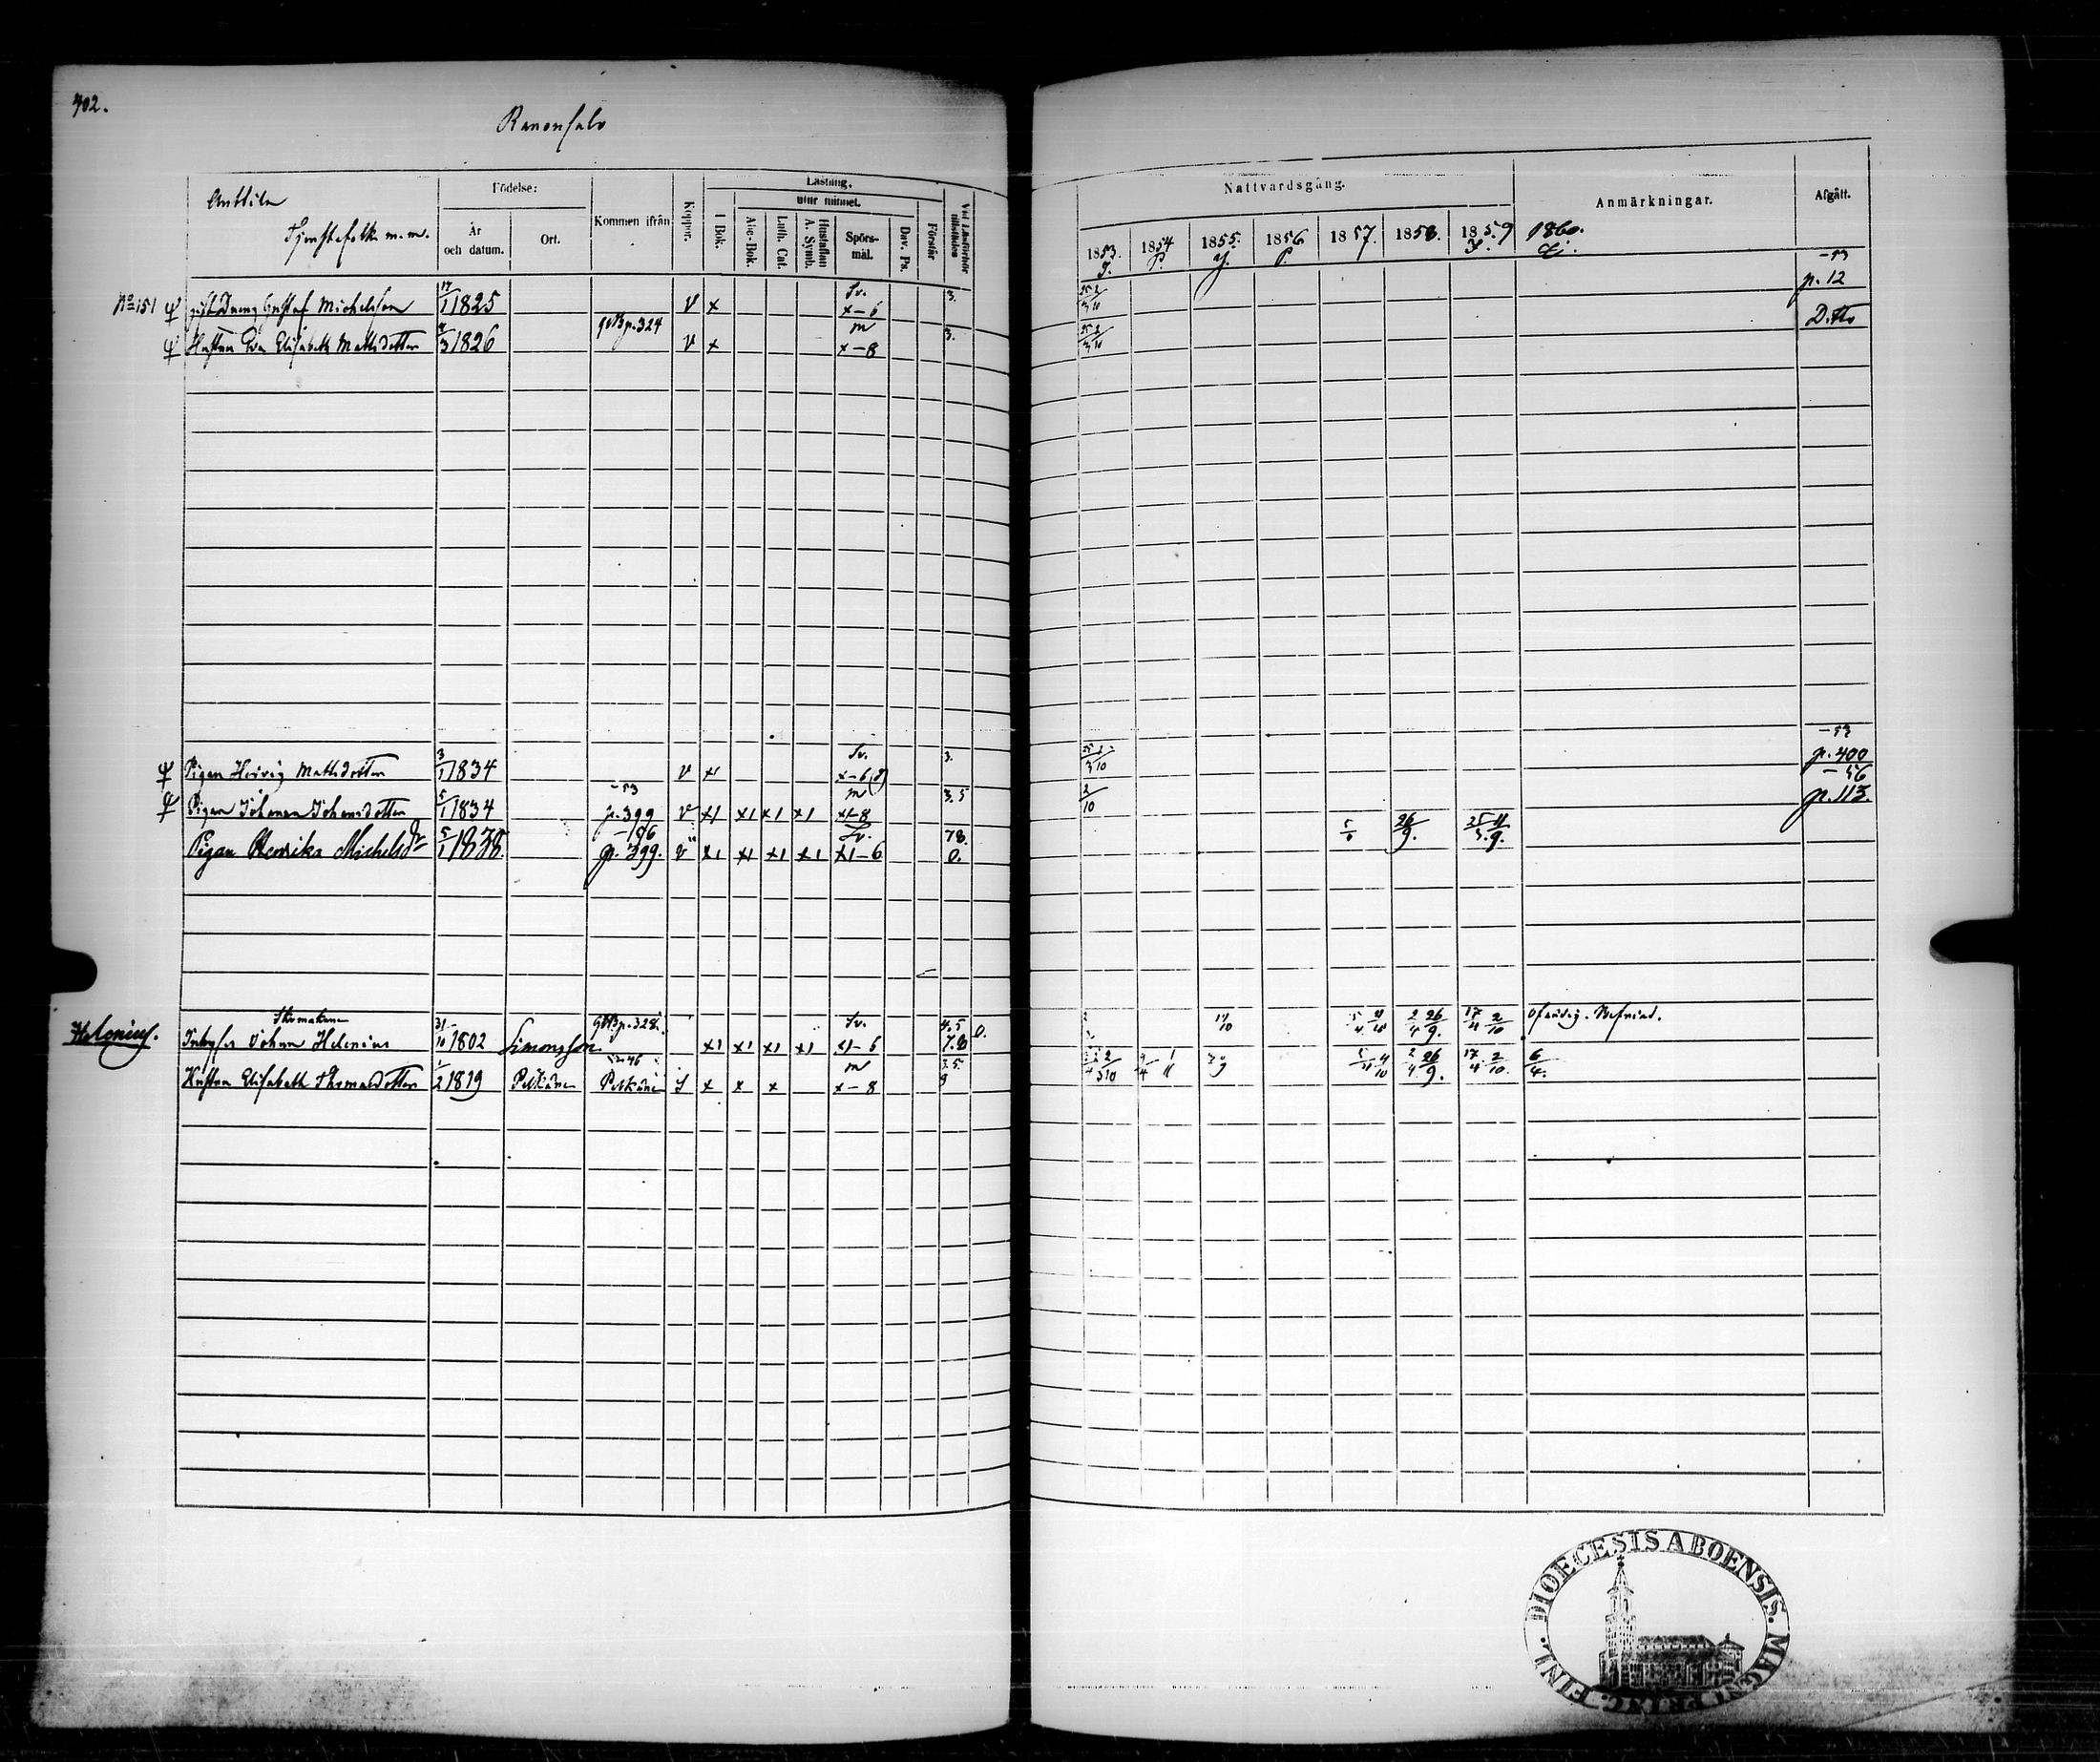 402.
Ranonsalo
Anttila
Tjenstefolk m.m.
Födelse:
År och datum.
Ort.
Kommen ifrån
Koppor.
Läsning.
utur minnet.
I Bok.
Abc-Bok.
Luth. Cat.
Hustaflan A. Symb.
Spörs-mål.
Dav. Ps.
Förstår
Vid Läsförhör tillstädes
Nattvardsgång.
Anmärkningar.
Afgått.
1853. 1854 1855. 1856 1857. 1858. 1859 1860.
No 151 Gustaf Michelsson 17/1 1825 v x Sv. x-6 3. -53 p. 12
Hustrun Eva Elisabeth Mattsdotter 1826 GKB p. 324 v x m x-8 3. D:tto
Pigan Hedvig Mattsdotter 3/1 1834 v x Sv. x-6 3. -53 p. 400
Pigan Johanna Johansdotter 5/1 1834 -53 p. 399 v x1 x1 x1 x1 m x1-8 3.5 2/10 -56 p. 113.
Pigan Henrika Michelsdr 5/1 1838. -56 p. 399. v x1 x1 x1 x1 Sv. x1-6 78. 0. 26/9.
Helenius. Inhyses Johan Helenius 31/10 1802 Simonsson GKB p. 328. x1 x1 x1 x1 Sv. x1-6 4.5 7.8 0. 2/4 26/9. 17/4 2/10
Hustrun Elisabeth Thomasdotter 1/2 1819 Pelkäne -46 Pelkäne x x x m x-8 3.5. 9 2/4 26/9. 17/4 2/10. 6/4.
DIOECESIS ABOENSIS. MAGNI PRINC. FINL.